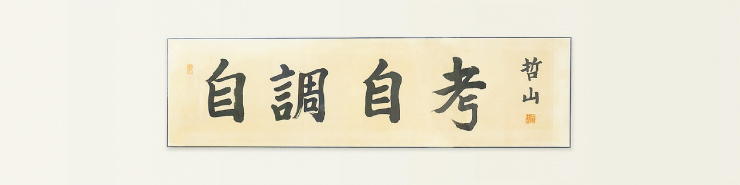 自調自考
哲山